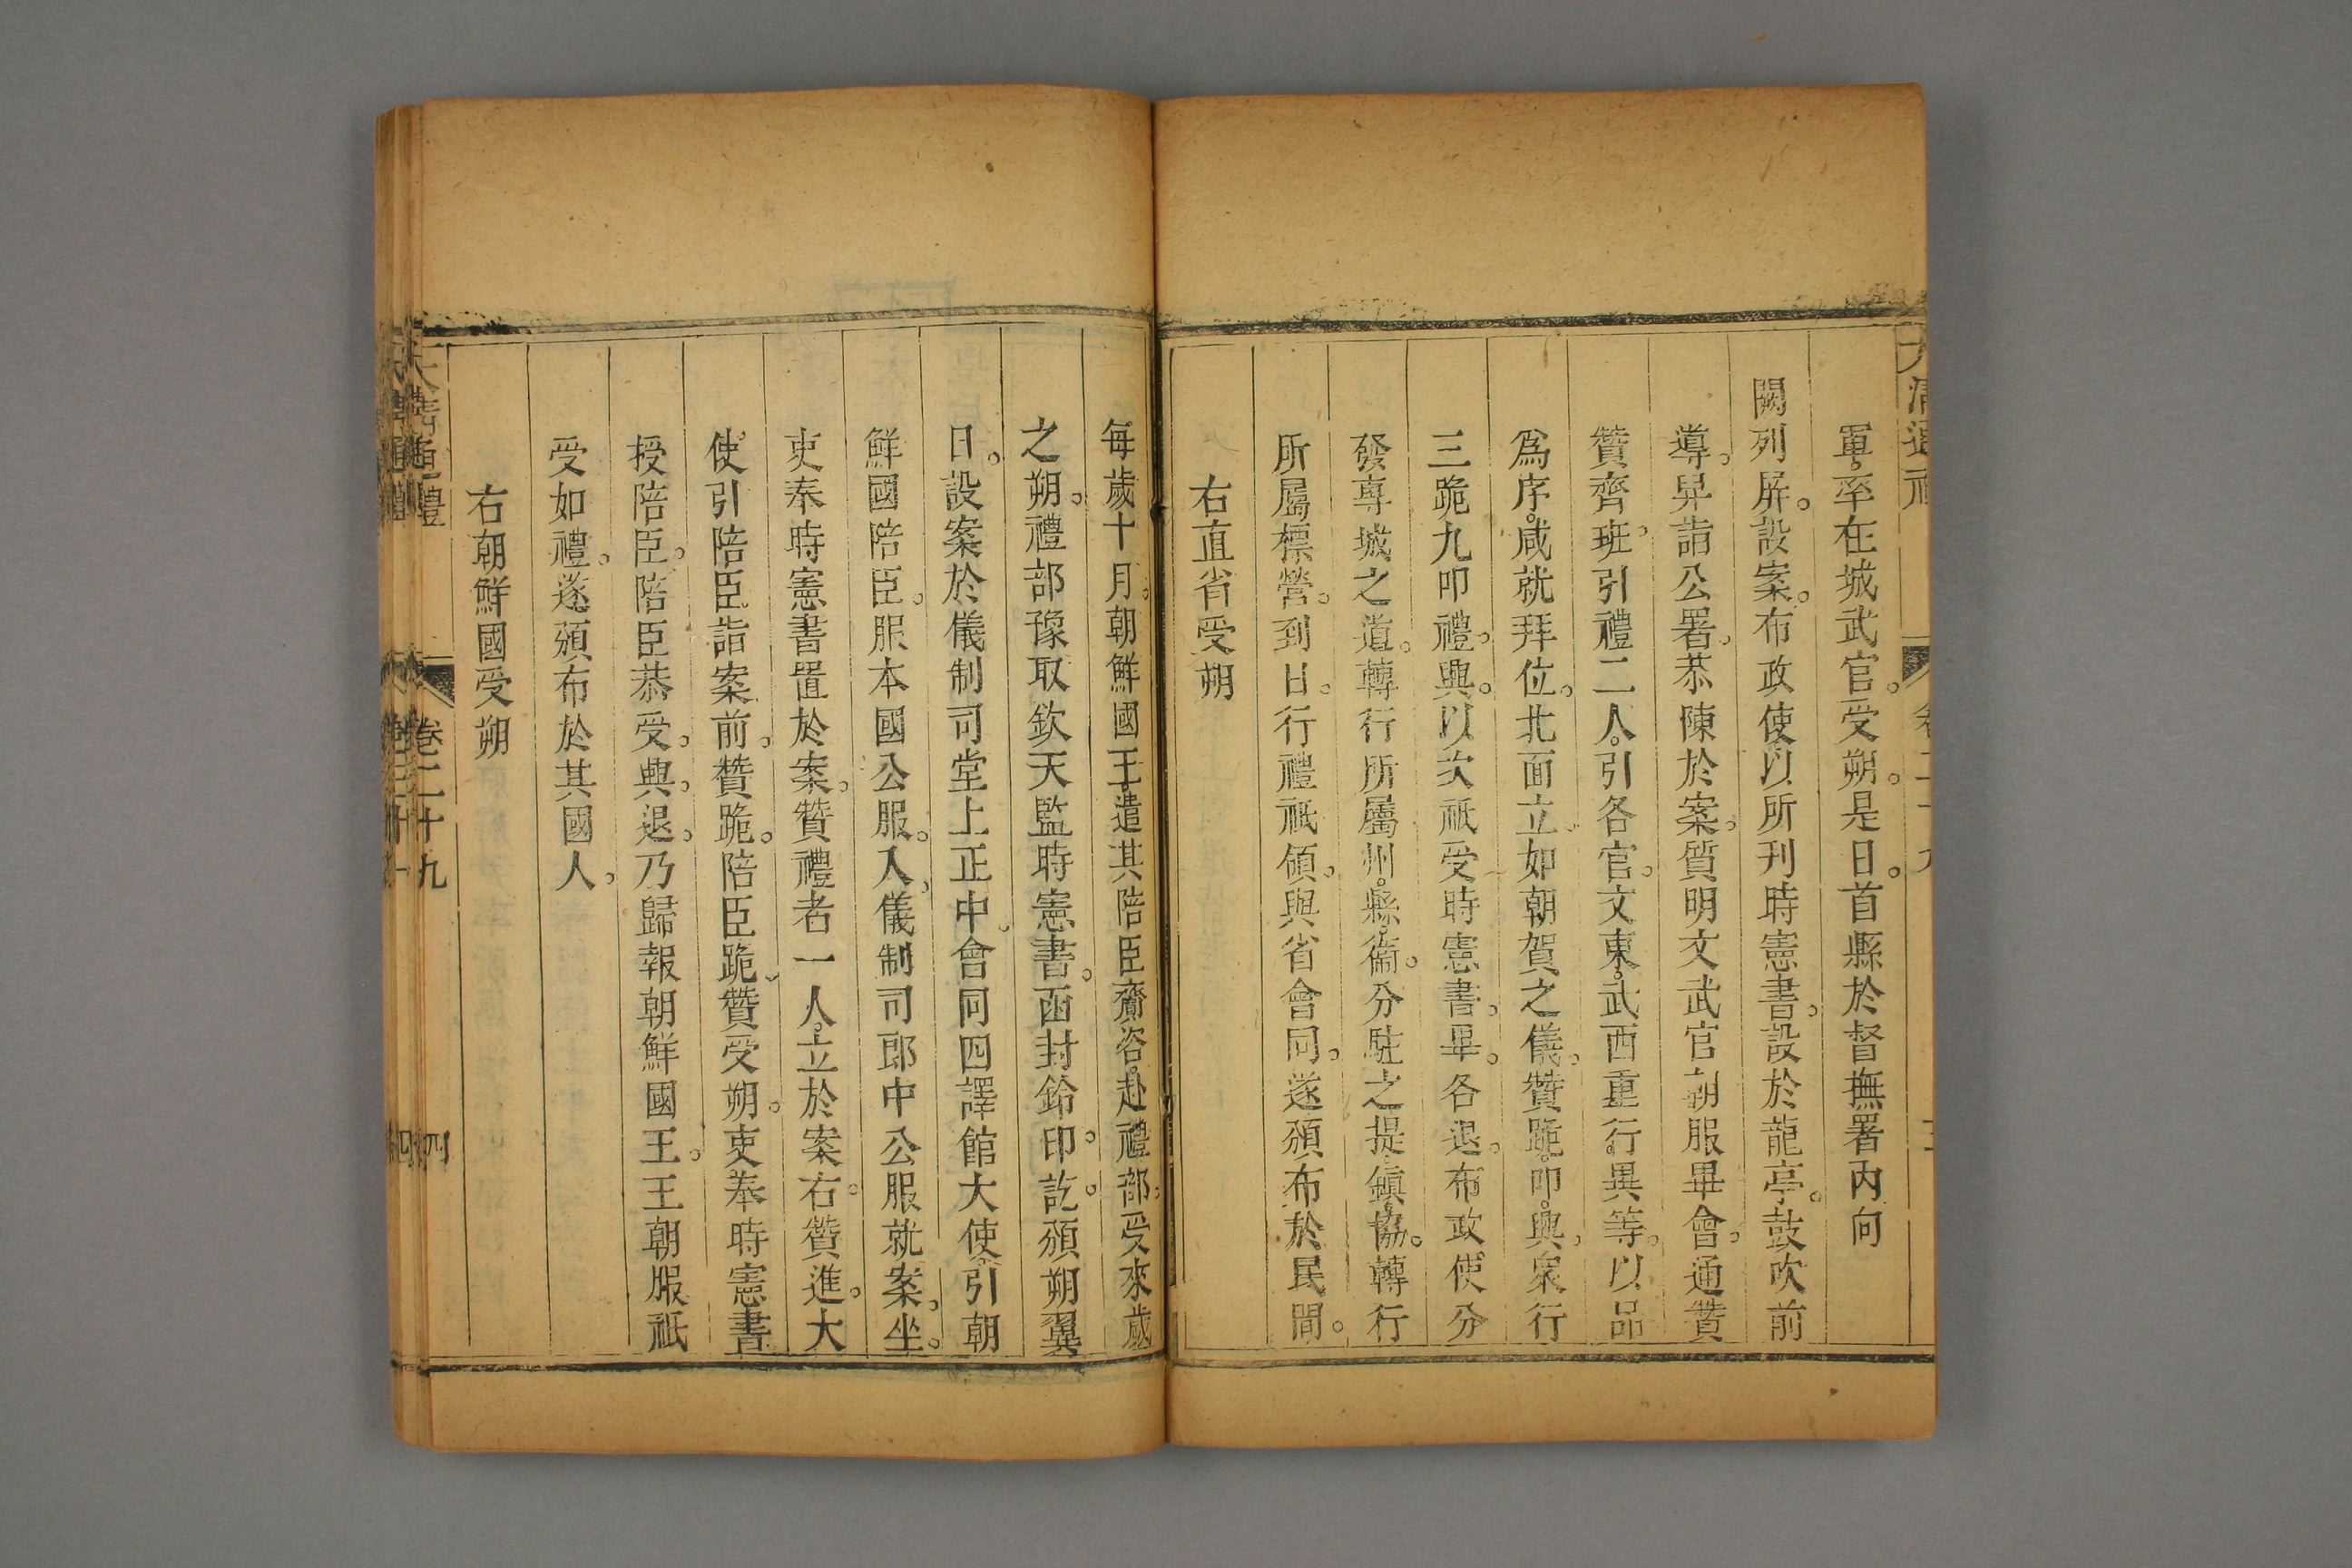 軍。率在城武官。受朔。是日。首縣於督撫署內向
闕列屏。設案。布政使以所刊時憲書。設於龍亭。鼓吹前
導。舁詣公署。恭陳於案。質明文武官朝服畢會。通贊
贊齊班。引禮二人。引各官。文東。武西重行異等。以品
爲序。咸就拜位。北面立。如朝賀之儀。贊跪。叩。興。衆行
三跪九叩禮。興。以次祇受時憲書。畢。各退。布政使分
發專城之道。轉行所屬州。縣。衞。分駐之提。鎮。協。轉行
所屬標營。到日。行禮祇領。與省會同。遂頒布於民間。
右直省受朔
每歲十月。朝鮮國王遣其陪臣齎咨。赴禮部。受來歲
之朔。禮部豫取欽天監時憲書。函封鈐印。訖。頒朔翼
日。設案於儀制司堂上正中。會同四譯館大使。引朝
鮮國陪臣。服本國公服。入儀制司郎中公服就案。坐。
吏奉時憲書置於案。贊禮者一人。立於案右。贊進。大
使。引陪臣詣案前。贊跪。陪臣跪。贊受朔。吏奉時憲書
授陪臣。陪臣恭受。興。退。乃歸報朝鮮國王。王朝服祇
受如禮。遂頒布於其國人。
右朝鮮國受朔
大清通禮 卷二十九 四